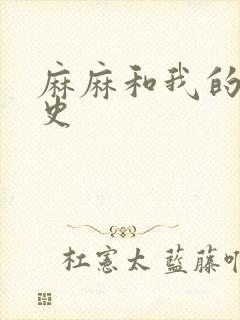 麻麻和我的
史
杜憲太 藍藤吖